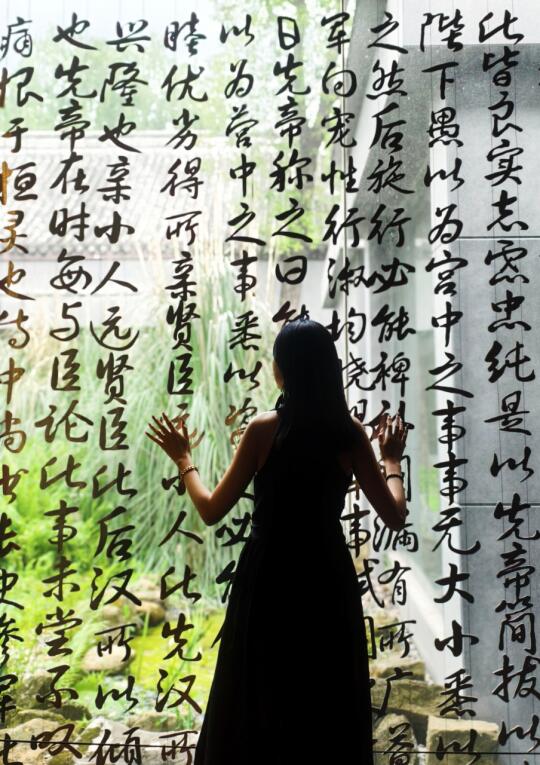 此皆良实志虑忠纯是以先帝简拔以
陛下愚以为宫中之事事无大小悉以
之然后施行必能裨补阙漏有所广
军向宠性行淑均晓事试用
日先帝称之曰能
以为营中之事悉以咨必能
睦优劣得所亲贤臣远小人此先汉所
兴隆也亲小人远贤臣此后汉所以倾
也先帝在时每与臣论此事未尝不叹
痛恨于桓灵也侍中尚书长史参军此